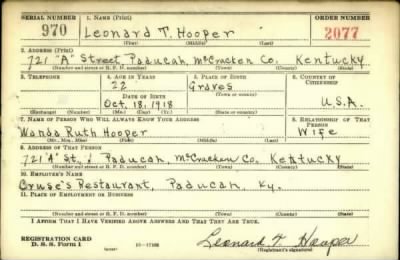 SERIAL NUMBER 1. NAME (Print) ORDER NUMBER
970 Leonard T. Hooper 2077
(First) (Middle) (Last)
2. ADDRESS (Print)
721 "A" Street Paducah, McCracken Co. Kentucky
(Number and street or R. F. D. number) (Town) (County) (State)
3. TELEPHONE 4. AGE IN YEARS 5. PLACE OF BIRTH 6. COUNTRY OF CITIZENSHIP
22 Graves
(Town or county)
DATE OF BIRTH
Oct. 18, 1918 U.S.A.
(Exchange) (Number) (Mo.) (Day) (Yr.) (State or country)
7. NAME OF PERSON WHO WILL ALWAYS KNOW YOUR ADDRESS 8. RELATIONSHIP OF THAT PERSON
Wanda Ruth Hooper Wife
(Mr., Mrs., Miss) (First) (Middle) (Last)
9. ADDRESS OF THAT PERSON
721 "A" St., Paducah, McCracken Co, Kentucky
(Number and street or R. F. D. number) (Town) (County) (State)
10. EMPLOYER'S NAME
Cruse's Restaurant, Paducah, Ky.
11. PLACE OF EMPLOYMENT OR BUSINESS
(Number and street or R. F. D. number) (Town) (County) (State)
I AFFIRM THAT I HAVE VERIFIED ABOVE ANSWERS AND THAT THEY ARE TRUE.
REGISTRATION CARD
D. S. S. Form 1 16—17105 Leonard T. Hooper
(Registrant's signature)